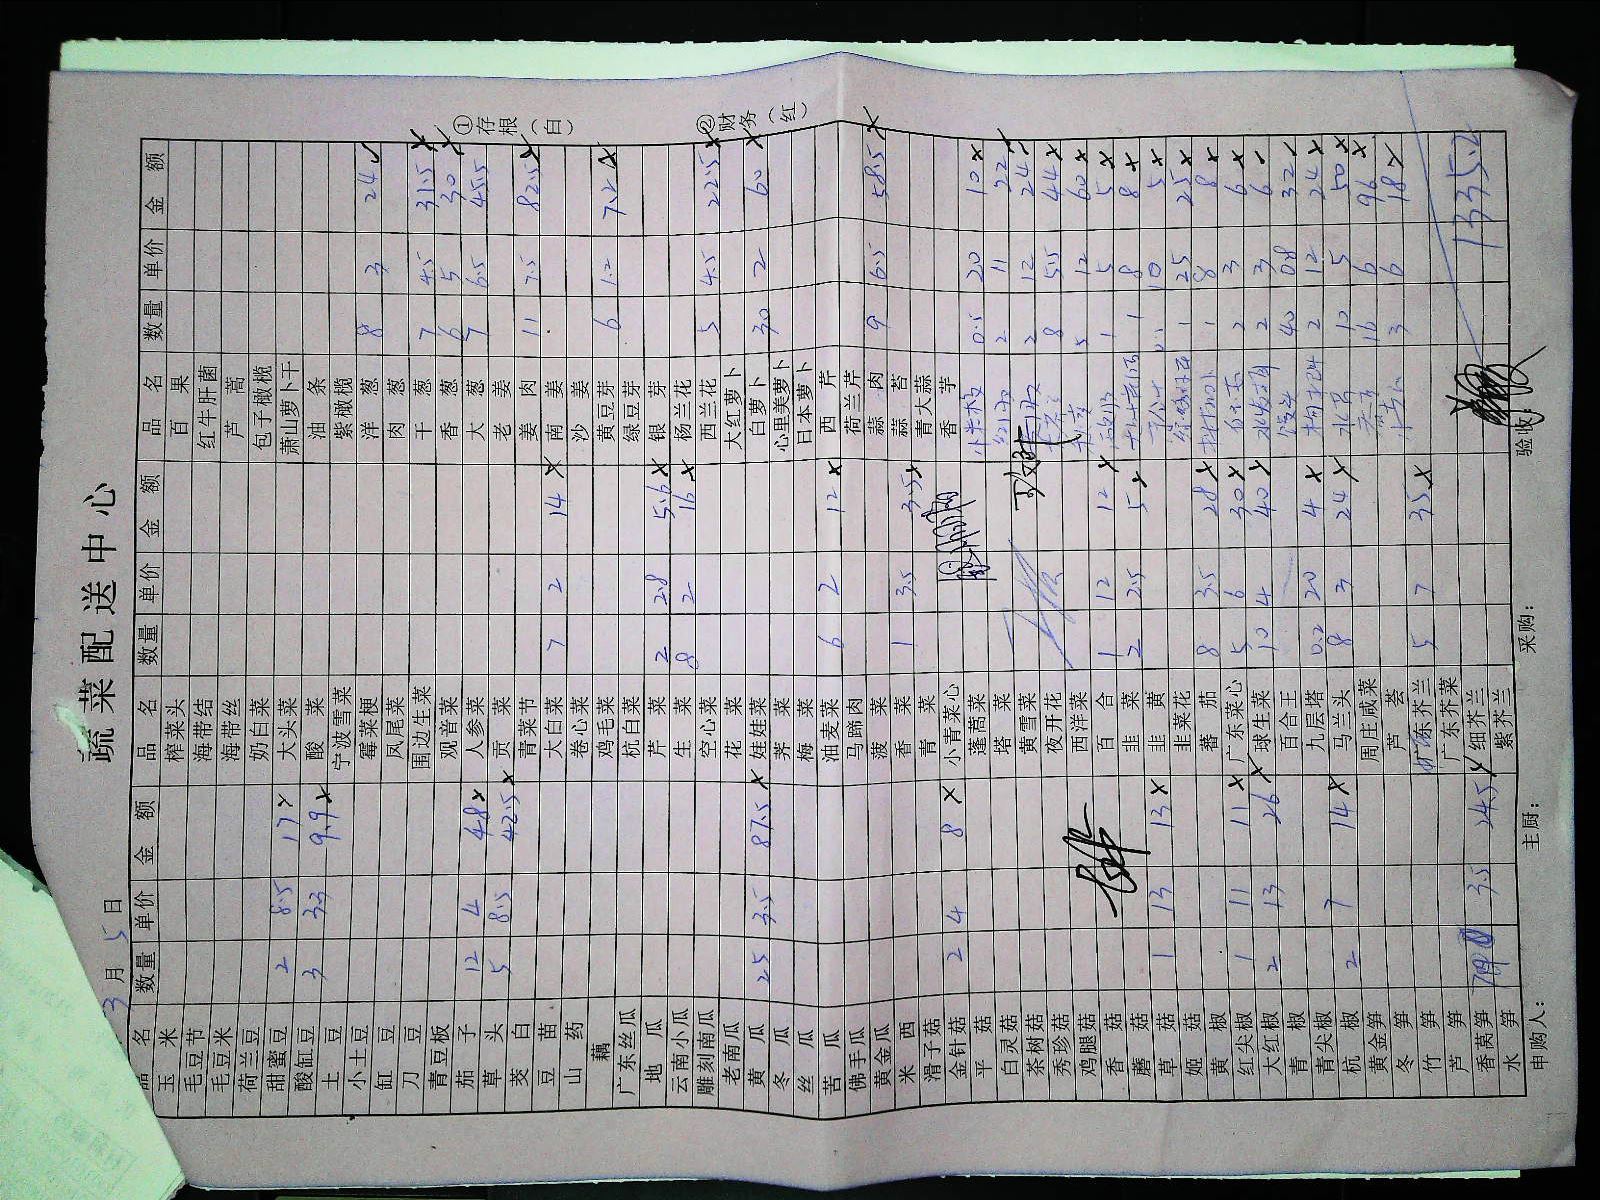 蔬菜配送中心
3月5日
①存根(白)
②财务(红)
品名 数量 单价 金额 品名 数量 单价 金额 品名 数量 单价 金额
玉米 榨菜头 百果
毛豆节 海带结 红牛肝菌
毛豆米 海带丝 芦蒿
荷兰豆 奶白菜 包子橄榄
甜蜜豆 2 8.5 17 大头菜 萧山萝卜干
酸缸豆 3 3.3 9.9 酸菜 油条
土豆 宁波雪菜 紫橄榄
小土豆 霉菜梗 洋葱 8 3 24
缸豆 凤尾菜 肉葱
刀豆 围边生菜 干葱 7 4.5 31.5
青豆板 观音菜 香葱 6 5 30
茄子 12 4 48 人参菜 大葱 7 6.5 45.5
草头 5 8.5 42.5 贡菜 老姜
茭白 青菜节 姜肉 11 7.5 82.5
豆苗 大白菜 7 2 14 南姜
山药 卷心菜 沙姜
藕 鸡毛菜 黄豆芽 6 1.2 7.2
广东丝瓜 杭白菜 绿豆芽
地瓜 芹菜 2 2.8 5.6 银芽
云南小瓜 生菜 8 2 16 杨兰花
雕刻南瓜 空心菜 西兰花 5 4.5 22.5
老南瓜 花菜 大红萝卜
黄瓜 25 3.5 87.5 娃娃菜 白萝卜 30 2 60
冬瓜 荠菜 心里美萝卜
丝瓜 梅菜 日本萝卜
苦瓜 油麦菜 6 2 12 西芹
佛手瓜 马蹄肉 荷兰芹
黄金瓜 菠菜 蒜肉 9 6.5 58.5
米西 香菜 1 3.5 3.5 蒜苔
滑子菇 青菜 青大蒜
金针菇 2 4 8 小青菜心 香芋
平菇 蓬蒿菜 小米椒 0.5 20 10
白灵菇 塔菜 2 11 22
茶树菇 黄雪菜 2 12 24
秀珍菇 夜开花 8 5.5 44
鸡腿菇 西洋菜 5 12 60
香菇 百合 1 12 12 1 5 5
蘑菇 韭菜 2 2.5 5 1 8 8
草菇 1 13 13 韭黄 0.5 10 5
姬菇 韭菜花 1 25 25
黄椒 蕃茄 8 3.5 28 1 8 8
红尖椒 1 11 11 广东菜心 5 6 30 2 3 6
大红椒 2 13 26 球生菜 10 4 40 2 3 6
青椒 百合王 40 0.8 32
青尖椒 九层塔 0.2 20 4 2 12 24
杭椒 2 7 14 马兰头 8 3 24 10 5 50
黄金笋 周庄咸菜 16 6 96
冬笋 芦荟 3 6 18
竹笋 广东芥兰 5 7 35
芦笋 广东芥菜
香莴笋 7 3.5 24.5 细芥兰 1335.2
水笋 紫芥兰
申购人: 主厨: 采购: 验收: